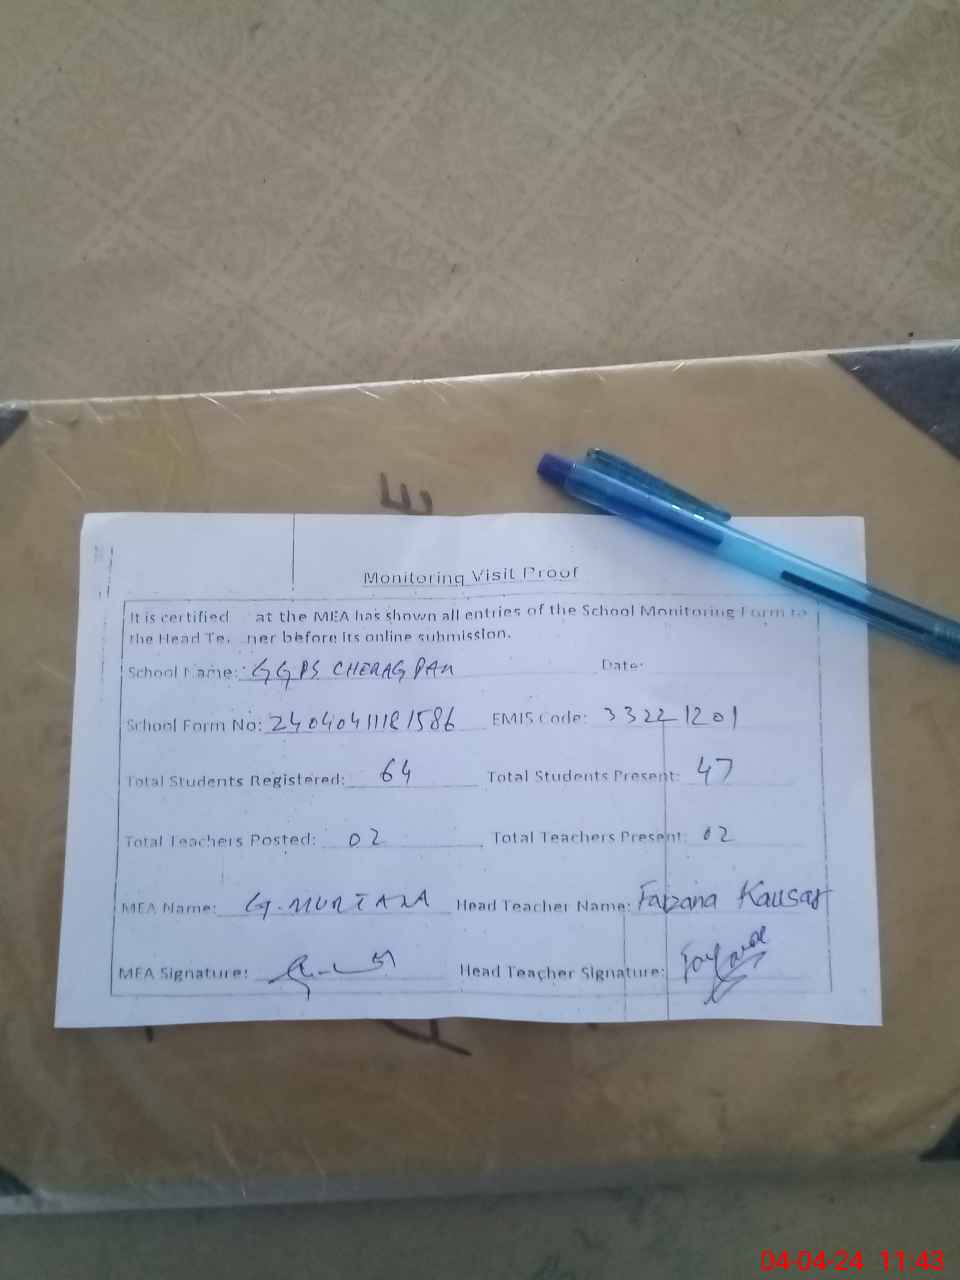 E
Monitoring Visit Proof
It is certified at the MEA has shown all entries of the School Monitoring Form to
the Head Te. ner before its online submission.
School Name: GGPS CHERAG PAH Date:
School Form No: 24040411181586 EMIS Code: 33221201
Total Students Registered: 64 Total Students Present: 47
Total Teachers Posted: 02 Total Teachers Present: 02
MEA Name: G. MURTAZA Head Teacher Name: Fabzana Kausar
MEA Signature: Head Teacher Signature:
04-04-24 11:43